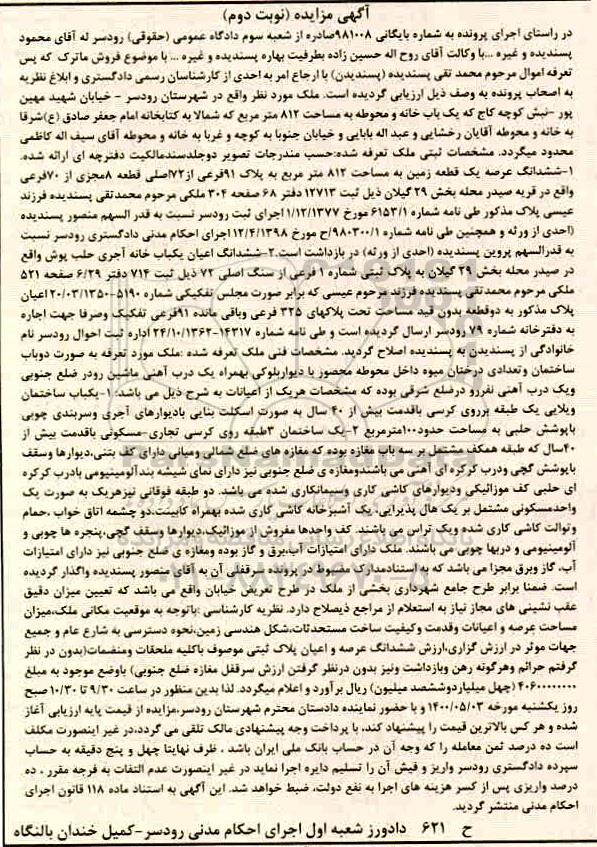 آگهی مزایده (نوبت دوم)
در راستای اجرای پرونده به شماره بایگانی ۹۸۱۰۰۸صادره از شعبه سوم دادگاه عمومی (حقوقی) رودسر له آقای محمود
پسندیده و غیره ...با وکالت آقای روح اله حسین زاده بطرفیت بهاره پسندیده و غیره ... با موضوع فروش ماترک که پس
تعرفه اموال مرحوم محمد تقی پسندیده (پسندیدن) با ارجاع امر به احدی از کارشناسان رسمی دادگستری و ابلاغ نظریه
به اصحاب پرونده به وصف ذیل ارزیابی گردیده است. ملک مورد نظر واقع در شهرستان رودسر - خیابان شهید مهین
پور -نبش کوچه کاج که یک باب خانه و محوطه به مساحت ۸۱۲ متر مربع که شمالا به کتابخانه امام جعفر صادق (ع)شرقا
به خانه و محوطه آقایان رخشایی و عبد اله بابایی و خیابان جنوبا به کوچه و غربا به خانه و محوطه آقای سیف اله کاظمی
محدود میگردد. مشخصات ثبتی ملک تعرفه شده:حسب مندرجات تصویر دوجلدسندمالکیت دفترچه ای ارائه شده.
۱-ششدانگ عرصه یک قطعه زمین به مساحت ۸۱۲ متر مربع به پلاک ۹۱فرعی از۷۲اصلی قطعه ۸مجزی از ۷۰فرعی
واقع در قریه صیدر محله بخش ۲۹ گیلان ذیل ثبت ۱۲۷۱۳ دفتر ۶۸ صفحه ۳۰۴ ملکی مرحوم محمدتقی پسندیده فرزند
عیسی پلاک مذکور طی نامه شماره ۶۱۵۳/۱ مورخ ۱/۱۲/۱۳۷۷ اجرای ثبت رودسر نسبت به قدر السهم منصور پسندیده
(احدی از ورثه و همچنین طی نامه شماره ۹۸۰۳۰۰/۱/ح مورخ ۱۲/۴/۱۳۹۸ اجرای احکام مدنی دادگستری رودسر نسبت
به قدرالسهم پروین پسندیده (احدی از ورثه) در بازداشت است.۲-ششدانگ اعیان یکباب خانه آجری حلب پوش واقع
در صیدر محله بخش ۲۹ گیلان به پلاک ثبتی شماره ۱ فرعی از سنگ اصلی ۷۲ ذیل ثبت ۷۱۴ دفتر ۶/۲۹ صفحه ۵۲۱
ملکی مرحوم محمدتقی پسندیده فرزند مرحوم عیسی که برابر صورت مجلس تفکیکی شماره ۵۱۹۰-۲۰/۰۳/۱۳۵۰ اعیان
پلاک مذکور به دوقطعه بدون قید مساحت تحت پلاکهای ۳۲۵ فرعی وباقی مانده ۹۱فرعی تفکیک وصرفا جهت اجاره
به دفترخانه شماره ۷۹ رودسر ارسال گردیده است و طی نامه شماره ۱۴۳۱۷-۲۴/۱۰/۱۳۶۲ اداره ثبت احوال رودسر نام
خانوادگی از پسندیدن به پسندیده اصلاح گردید. مشخصات فنی ملک تعرفه شده :ملک مورد تعرفه به صورت دوباب
ساختمان وتعدادی درختان میوه داخل محوطه محصور با دیواربلوکی بهمراه یک درب آهنی ماشین رودر ضلع جنوبی
ویک درب آهنی نفررو درضلع شرقی بوده که مشخصات هریک از اعیانات به شرح ذیل می باشد: ۱-یکباب ساختمان
ویلایی یک طبقه برروی کرسی باقدمت بیش از ۴۰ سال به صورت اسکلت بنایی بادیوارهای آجری وسربندی چوبی
باپوشش حلبی به مساحت حدود۱۰۰مترمربع ۲-یک ساختمان ۳طبقه روی کرسی تجاری-مسکونی باقدمت بیش از
۴۰سال که طبقه همکف مشتمل بر سه باب مغازه بوده که مغازه های ضلع شمالی ومیانی دارای کف بتنی،دیوارها وسقف
باپوشش گچی ودرب کرکره ای آهنی می باشندومغازه ی ضلع جنوبی نیز دارای نمای شیشه بندآلومینیومی بادرب کرکره
ای حلبی کف موزائیکی ودیوارهای کاشی کاری وسیمانکاری شده می باشد. دو طبقه فوقانی نیزهریک به صورت یک
واحدمسکونی مشتمل بر یک هال پذیرایی، یک آشپزخانه کاشی کاری شده بهمراه کابینت،دو چشمه اتاق خواب ،حمام
وتوالت کاشی کاری شده ویک تراس می باشند. کف واحدها مفروش از موزائیک،دیوارها وسقف گچی،پنجره ها چوبی و
آلومینیومی و دربها چوبی می باشند. ملک دارای امتیازات آب،برق و گاز بوده ومغازه ی ضلع جنوبی نیز دارای امتیازات
آب، گاز وبرق مجزا می باشد که به استنادمدارک مضبوط در پرونده سرقفلی آن به آقای منصور پسندیده واگذار گردیده
است. ضمنا برابر طرح جامع شهرداری بخشی از ملک در طرح تعریض خیابان واقع می باشد که تعیین میزان دقیق
عقب نشینی های مجاز نیاز به استعلام از مراجع ذیصلاح دارد. نظریه کارشناسی :باتوجه به موقعیت مکانی ملک،میزان
مساحت عرصه و اعیانات وقدمت وکیفیت ساخت مستحدثات،شکل هندسی زمین،نحوه دسترسی به شارع عام و جمیع
جهات موثر در ارزش گزاری،ارزش ششدانگ عرصه و اعیان پلاک ثبتی موصوف باکلیه ملحقات ومنضمات(بدون در نظر
گرفتم حرائم وهرگونه رهن وبازداشت ونیز بدون درنظر گرفتن ارزش سرقفل مغازه ضلع جنوبی) باوضع موجود به مبلغ
(چهل میلیاردوششصد میلیون) ریال برآورد و اعلام میگردد. لذا بدین منظور در ساعت ۹/۳۰ تا ۱۰/۳۰ صبح
روز یکشنبه مورخه ۱۴۰۰/۰۵/۰۳ و با حضور نماینده دادستان محترم شهرستان رودسر،مزایده از قیمت پایه ارزیابی آغاز
شده و هر کس بالاترین قیمت را پیشنهاد کند، با پرداخت وجه پیشنهادی مالک تلقی می گردد،در غیر اینصورت مکلف
است ده درصد ثمن معامله را که وجه آن در حساب بانک ملی ایران باشد ، ظرف نهایتا چهل و پنج دقیقه به حساب
سپرده دادگستری رودسر واریز و فیش آن را تسلیم دایره اجرا نماید در غیر اینصورت عدم التفات به فرجه مقرر ، ده
درصد واریزی پس از کسر هزینه های اجرا به نفع دولت، ضبط خواهد شد. این آگهی به استناد ماده ۱۱۸ قانون اجرای
احکام مدنی منتشر گردید.
ح ۶۲۱ دادورز شعبه اول اجرای احکام مدنی رودسر-کمیل خندان بالنگاه